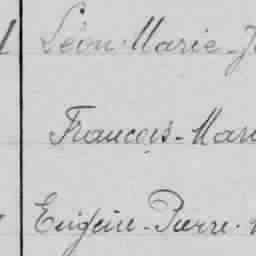 Léon-Marie-J
François-Mari
Eugène-Pierre-